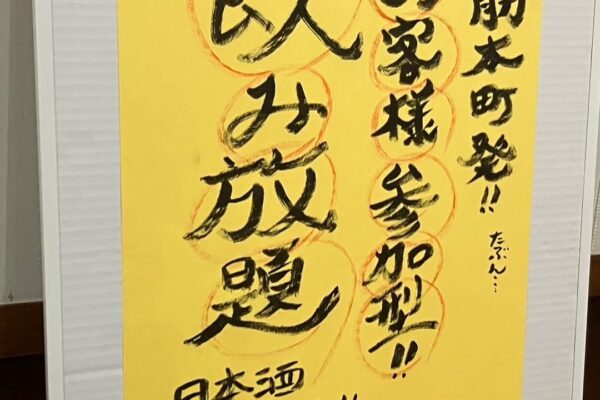 筋本町発!!
たぶん…
客様参加型!!
飲み放題
日本酒